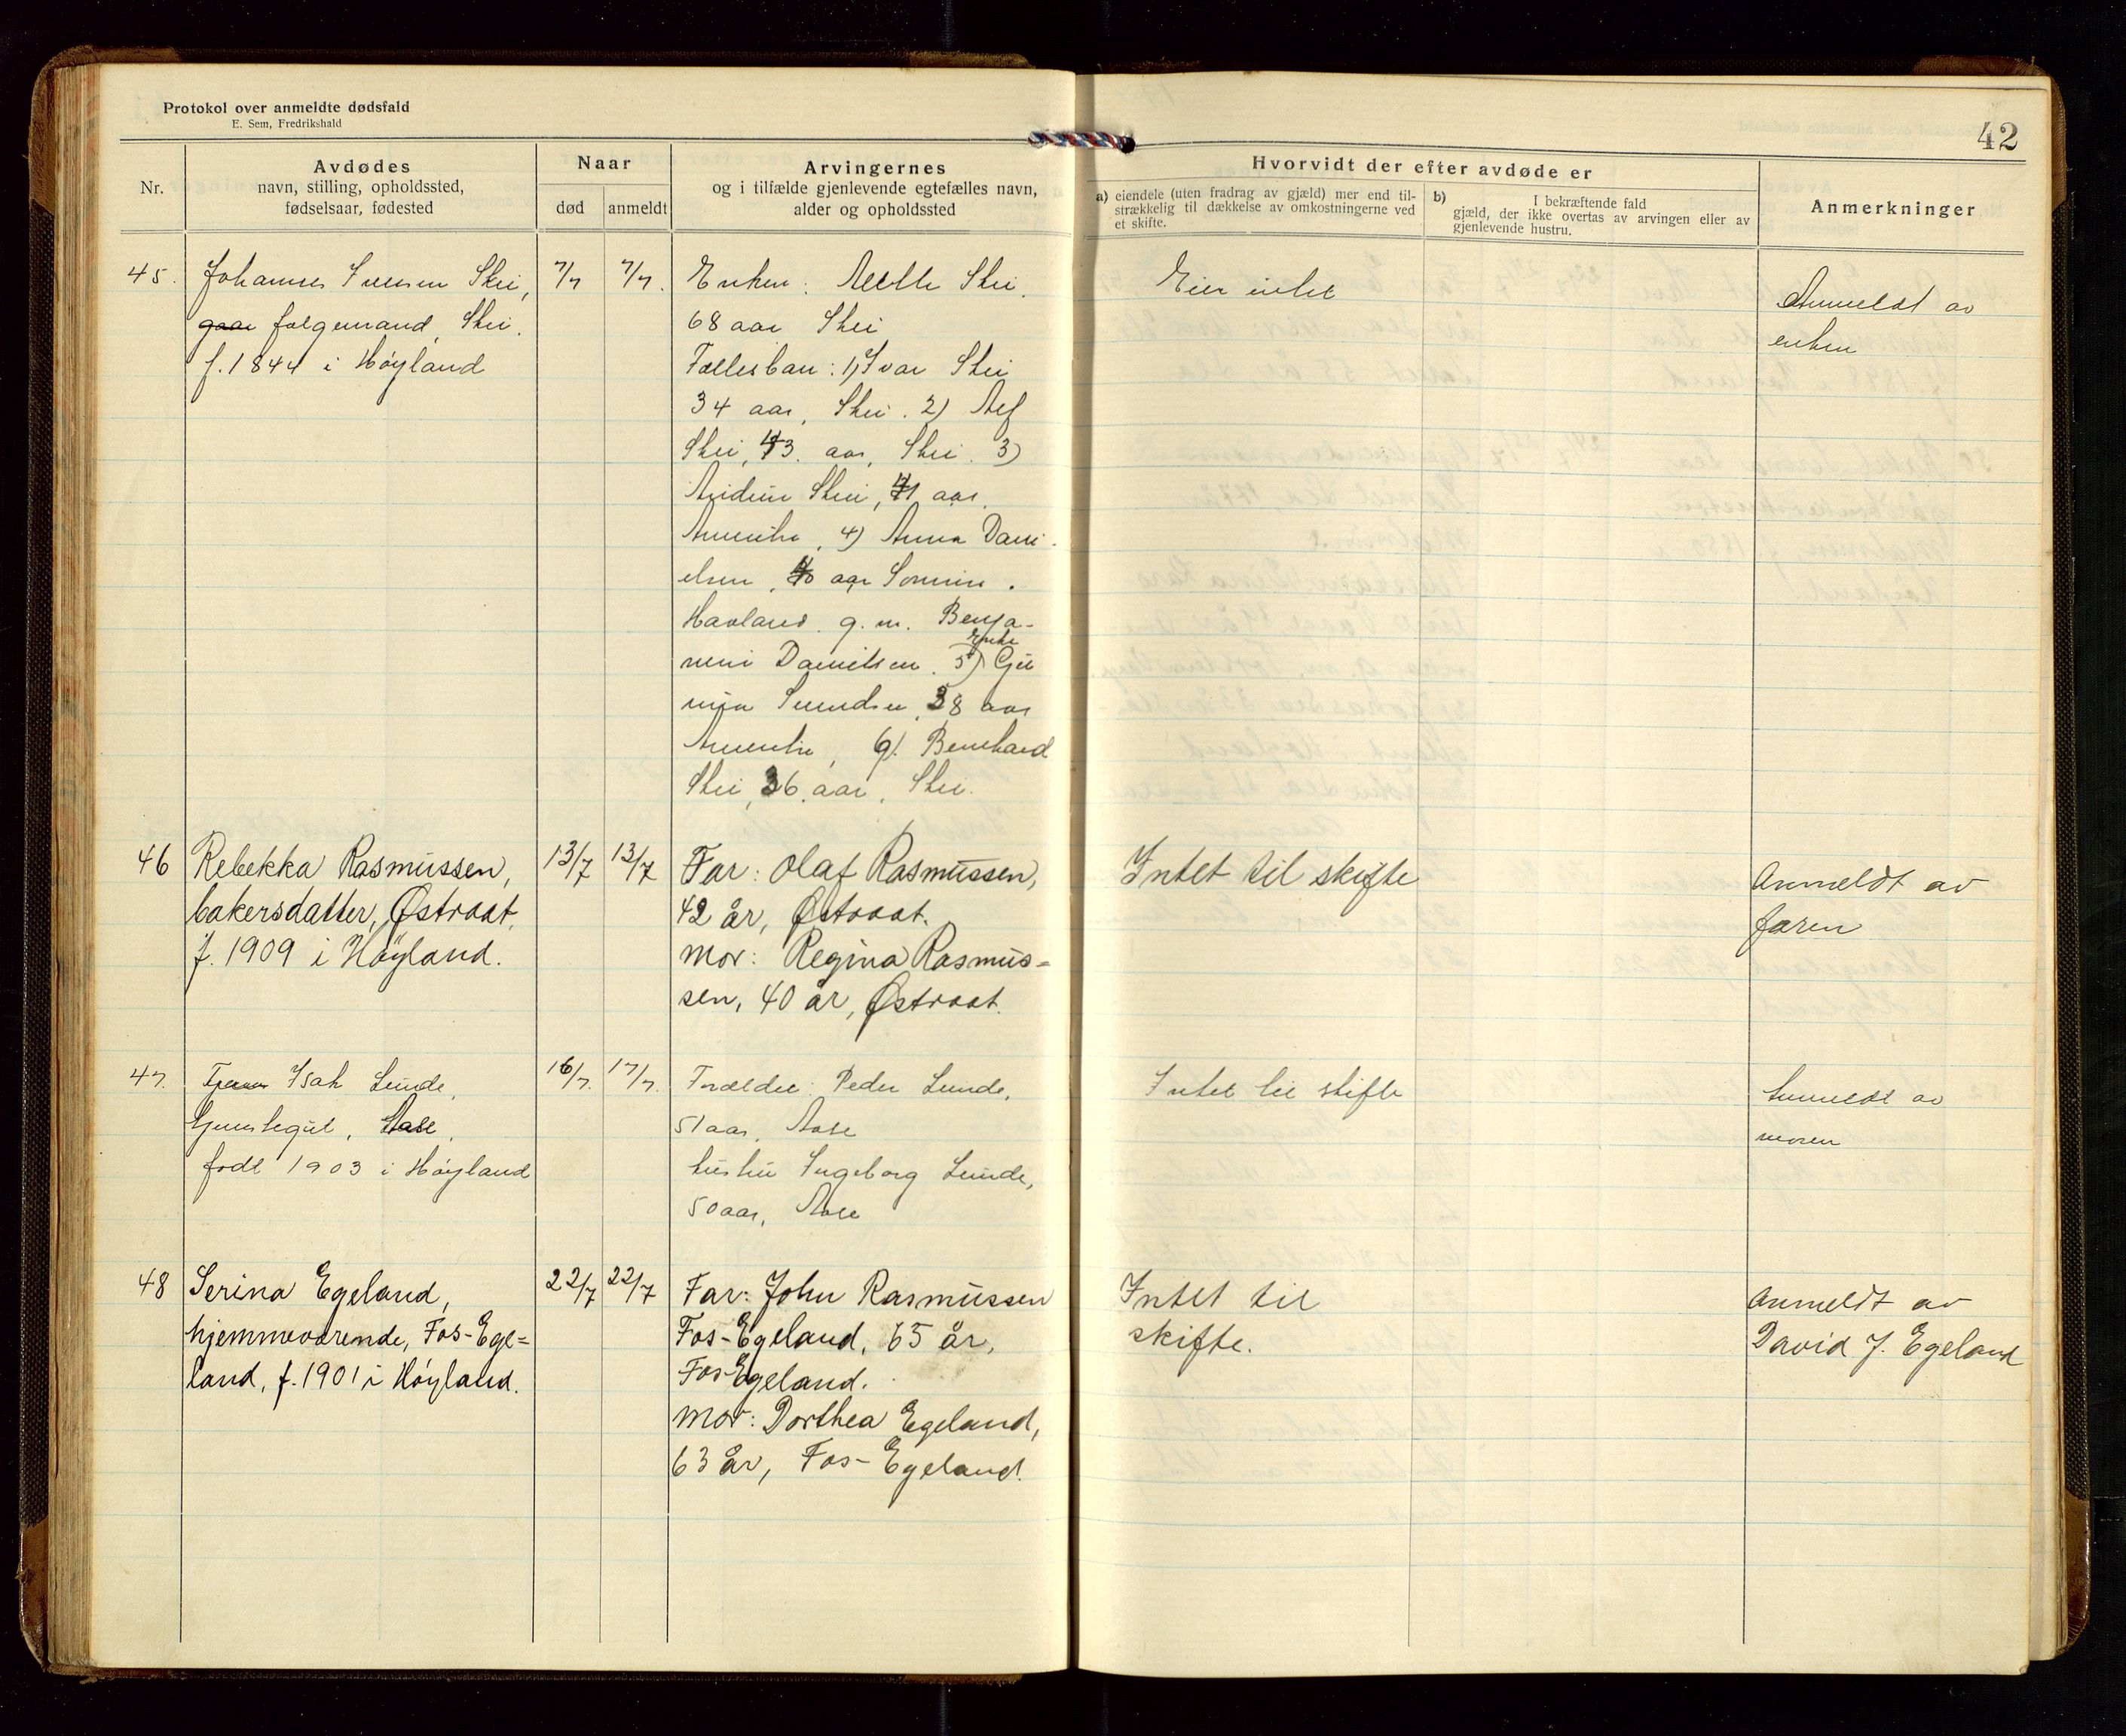 Protokol over anmeldte dødsfald
E. Sem, Fredrikshald
42
Nr.
Avdødes
navn, stilling, opholdssted,
fødselsaar, fødested
Naar
død
anmeldt
Arvingernes
og i tilfælde gjenlevende egtefælles navn,
alder og opholdssted
Hvorvidt der efter avdøde er
a) eiendele (uten fradrag av gjæld) mer end til-
strækkelig til dækkelse av omkostningerne ved
et skifte.
b) I bekræftende fald
gjæld, der ikke overtas av arvingen eller av
gjenlevende hustru.
Anmerkninger
45.
Johannes Svensen Skei,
gaar folgemand, Skei.
f. 1844 i Høyland
7/7
7/7.
Enken: Skei.
68 aar Skei
Fællesbarn: 1) Ivar Skei
34 aar, Skei. 2) Alf
Skei, 43. aar, Skei. 3)
Skei, 41 aar,
Amerika, 4) Anna Dani-
elsen, 40 aar
Havland g. m. Benja-
min Danielsen. 5) Enke Gu
38 aar
Amerika, 6) Bernhard
Skei, 36 aar, Skei.
Eier intet
Anmeldt av
enken
46
Rebekka Rasmussen,
bakersdatter, Østraat,
f. 1909 i Høyland.
13/7
13/7
Far: Olaf Rasmussen,
42 år, Østraat.
Mor: Regina Rasmus=
sen, 40 år, Østraat.
Intet til skifte
Anmeldt av
faren
47.
Isak Lunde,
Aase,
født 1903 i Høyland
16/7.
17/7.
Forældre: Peder Lunde,
51 aar, Aase
hustru Ingeborg Lunde,
50 aar, Aase
Intet til skifte
Anmeldt av
moren
48
Serina Egeland,
hjemmeværende, Fos-Ege=
land, f. 1901 i Høyland.
22/7
22/7
Far: John Rasmussen
Fos-Egeland, 65 år,
Fos-Egeland.
Mor: Dorthea Egeland,
63 år, Fos-Egeland.
Intet til
skifte.
Anmeldt av
David J. Egeland